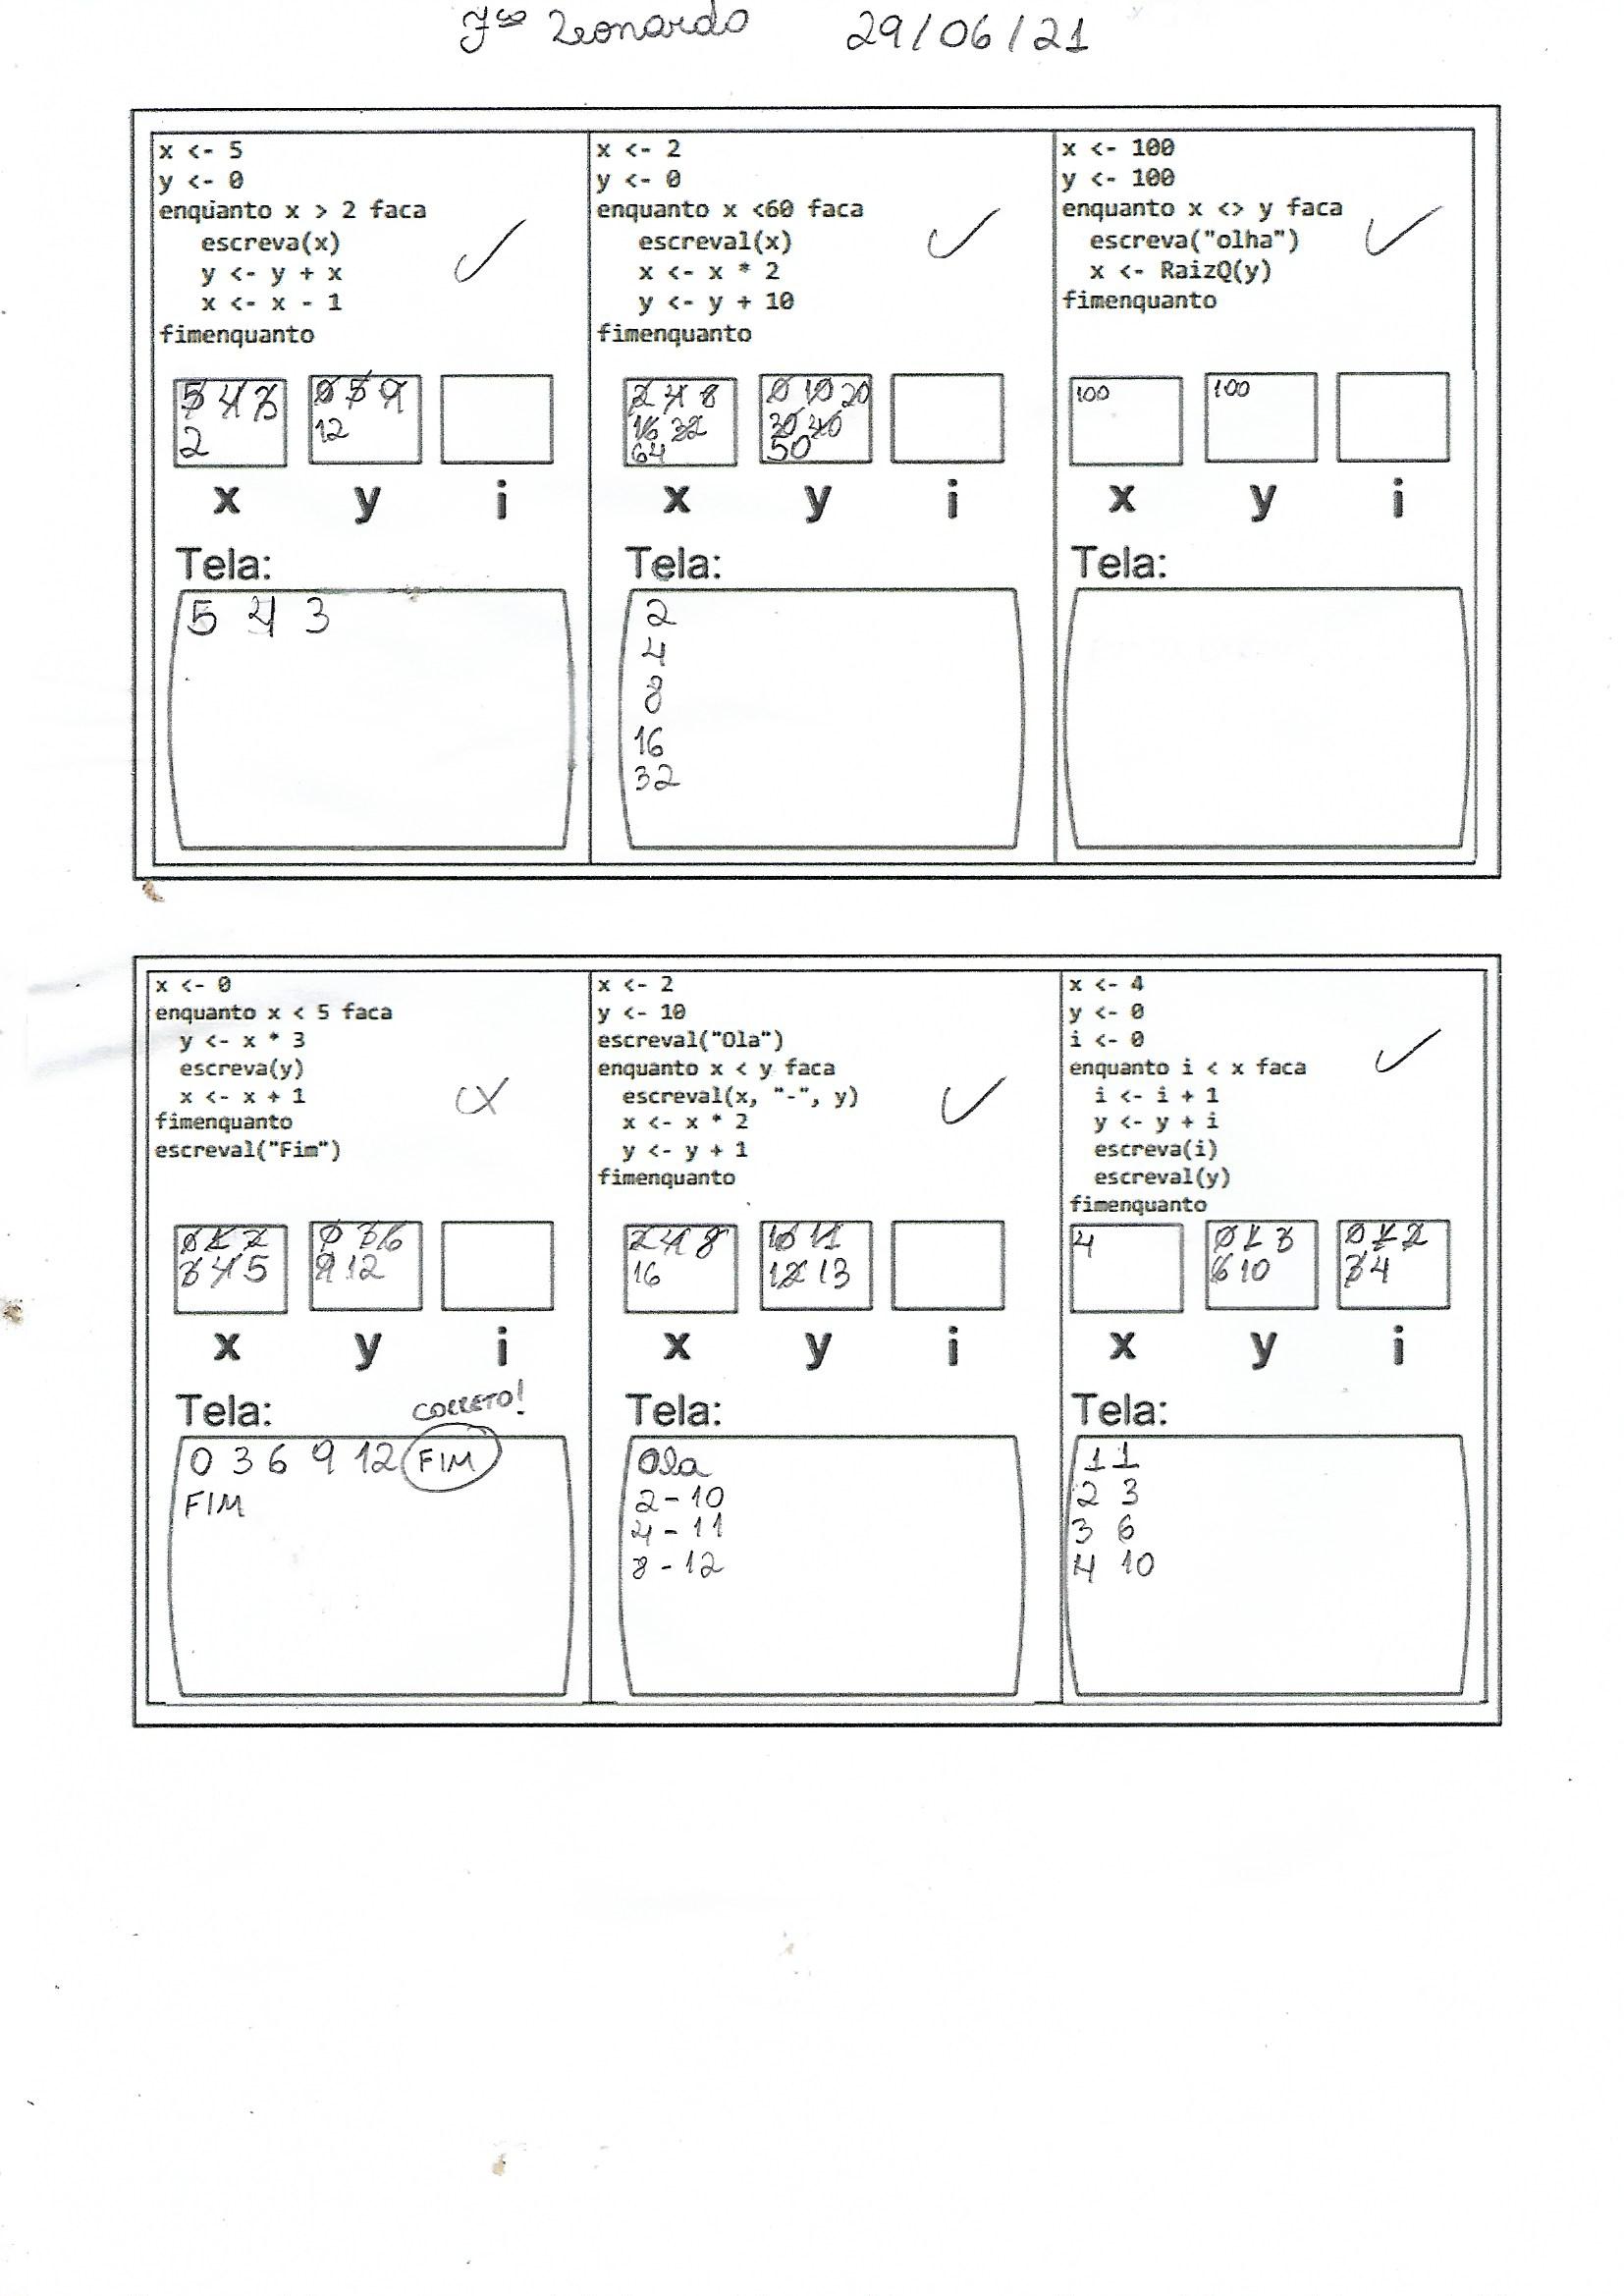 Leonardo 29/06/21
x <- 5
y <- 0
enquanto x > 2 faca
escreva(x)
y <- y + x
x <- x - 1
fimenquanto
5 4 3
2
0 5 9
12
x y i
Tela:
5 4 3
x <- 2
y <- 0
enquanto x <60 faca
escreval(x)
x <- x * 2
y <- y + 10
fimenquanto
2 4 8
16 32
64
0 10 20
30 40
50
x y i
Tela:
2
4
8
16
32
x <- 100
y <- 100
enquanto x <> y faca
escreva("olha")
x <- RaizQ(y)
fimenquanto
100
100
x y i
Tela:
x <- 0
enquanto x < 5 faca
y <- x * 3
escreva(y)
x <- x + 1
fimenquanto
escreval("Fim")
0 1 2
3 4 5
0 3 6
9 12
x y i
Tela:
CORRETO!
0 3 6 9 12 FIM
FIM
x <- 2
y <- 10
escreval("Ola")
enquanto x < y faca
escreval(x, "-", y)
x <- x * 2
y <- y + 1
fimenquanto
2 4 8
16
10 11
12 13
x y i
Tela:
Ola
2 - 10
4 - 11
8 - 12
x <- 4
y <- 0
i <- 0
enquanto i < x faca
i <- i + 1
y <- y + i
escreva(i)
escreval(y)
fimenquanto
4
0 1 3
6 10
0 1 2
3 4
x y i
Tela:
1 1
2 3
3 6
4 10